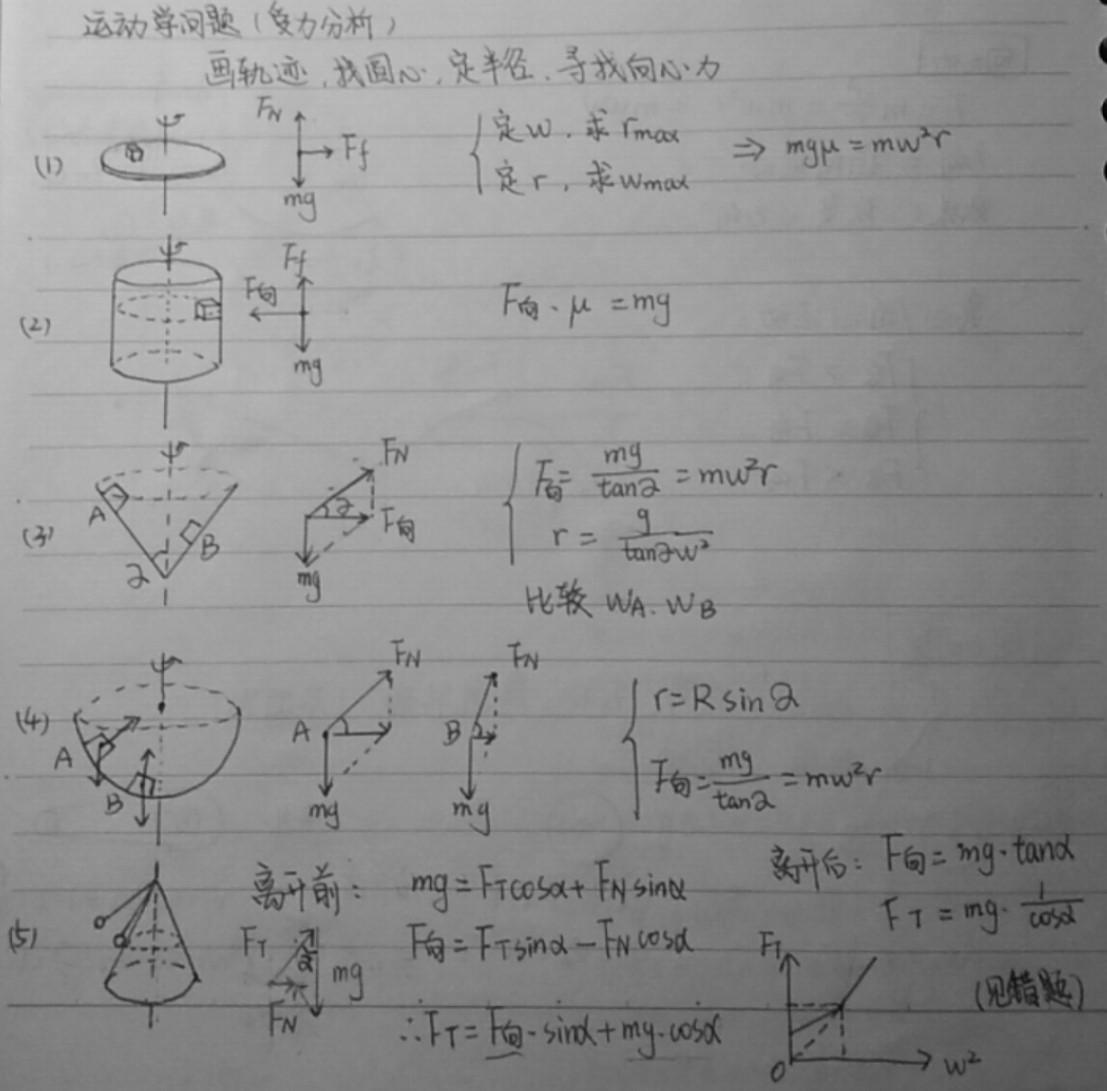 运动学问题(受力分析)
画轨迹,找圆心,定半径,寻找向心力
(1) FN Ff mg { 定w,求rmax 定r,求wmax ⇒ mgμ = mw²r
(2) Ff F向 mg F向·μ = mg
(3) A B α FN α F向 mg { F向 = mg/tanα = mw²r
r = g/tanαw²
比较 wA. wB
(4) A B A FN mg B FN mg { r = R sinα
F向 = mg/tanα = mw²r
(5) 离开前: mg = FTcosα + FN sinα
F向 = FTsinα − FN cosα
FT α mg FN
∴FT = F向·sinα + mg·cosα
离开后: F向 = mg·tanα
FT = mg·1/cosα
(见错题)
FT O w²